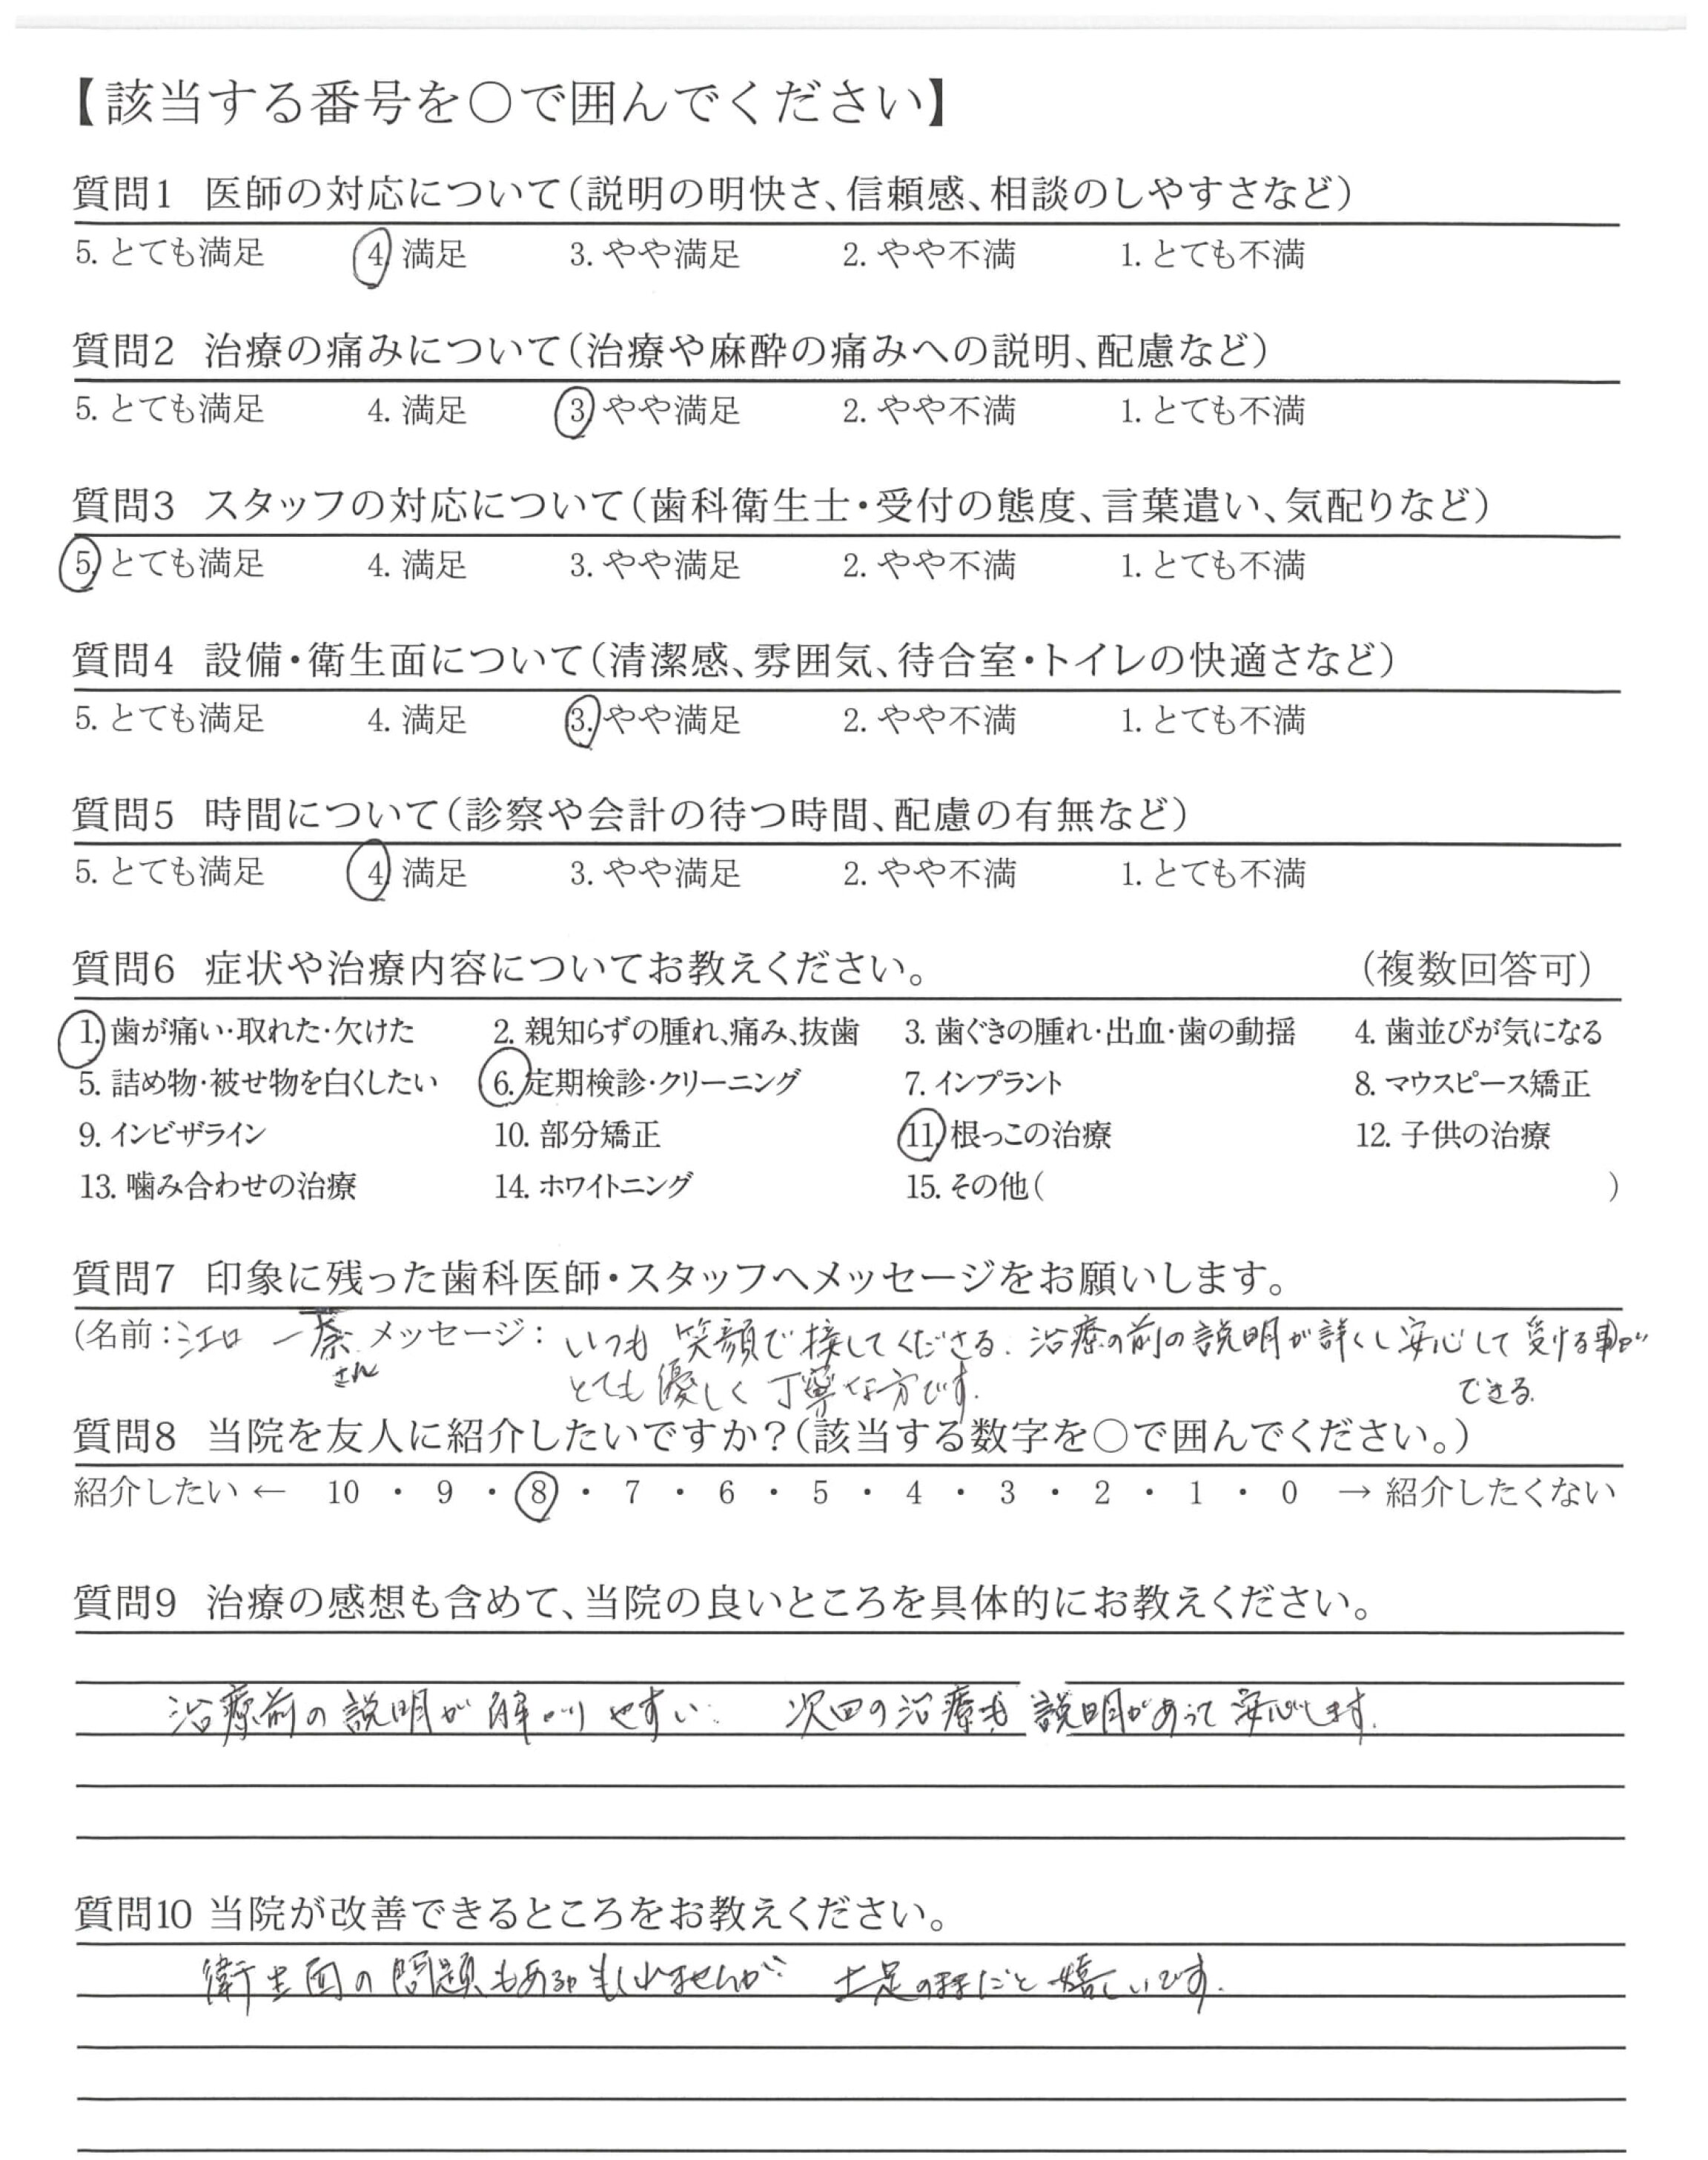 【該当する番号を○で囲んでください】
質問1 医師の対応について(説明の明快さ、信頼感、相談のしやすさなど)
5. とても満足 4. 満足 3. やや満足 2. やや不満 1. とても不満
質問2 治療の痛みについて(治療や麻酔の痛みへの説明、配慮など)
5. とても満足 4. 満足 3. やや満足 2. やや不満 1. とても不満
質問3 スタッフの対応について(歯科衛生士・受付の態度、言葉遣い、気配りなど)
5. とても満足 4. 満足 3. やや満足 2. やや不満 1. とても不満
質問4 設備・衛生面について(清潔感、雰囲気、待合室・トイレの快適さなど)
5. とても満足 4. 満足 3. やや満足 2. やや不満 1. とても不満
質問5 時間について(診察や会計の待つ時間、配慮の有無など)
5. とても満足 4. 満足 3. やや満足 2. やや不満 1. とても不満
質問6 症状や治療内容についてお教えください。 (複数回答可)
1. 歯が痛い・取れた・欠けた 2. 親知らずの腫れ、痛み、抜歯 3. 歯ぐきの腫れ・出血・歯の動揺 4. 歯並びが気になる
5. 詰め物・被せ物を白くしたい 6. 定期検診・クリーニング 7. インプラント 8. マウスピース矯正
9. インビザライン 10. 部分矯正 11. 根っこの治療 12. 子供の治療
13. 噛み合わせの治療 14. ホワイトニング 15. その他( )
質問7 印象に残った歯科医師・スタッフへメッセージをお願いします。
(名前:江口 メッセージ: いつも 笑顔で 接してくださる. 治療の前の説明が詳くし安心して 受ける事が
さん とても 優しく 丁寧な方です. できる.
質問8 当院を友人に紹介したいですか?(該当する数字を○で囲んでください。)
紹介したい ← 10 ・ 9 ・ 8 ・ 7 ・ 6 ・ 5 ・ 4 ・ 3 ・ 2 ・ 1 ・ 0 → 紹介したくない
質問9 治療の感想も含めて、当院の良いところを具体的にお教えください。
治療前の説明が 解りやすい. 次回の治療も 説明があって安心します.
質問10 当院が改善できるところをお教えください。
衛生面の問題もあるかもしれませんが 土足のままだと嬉しいです.